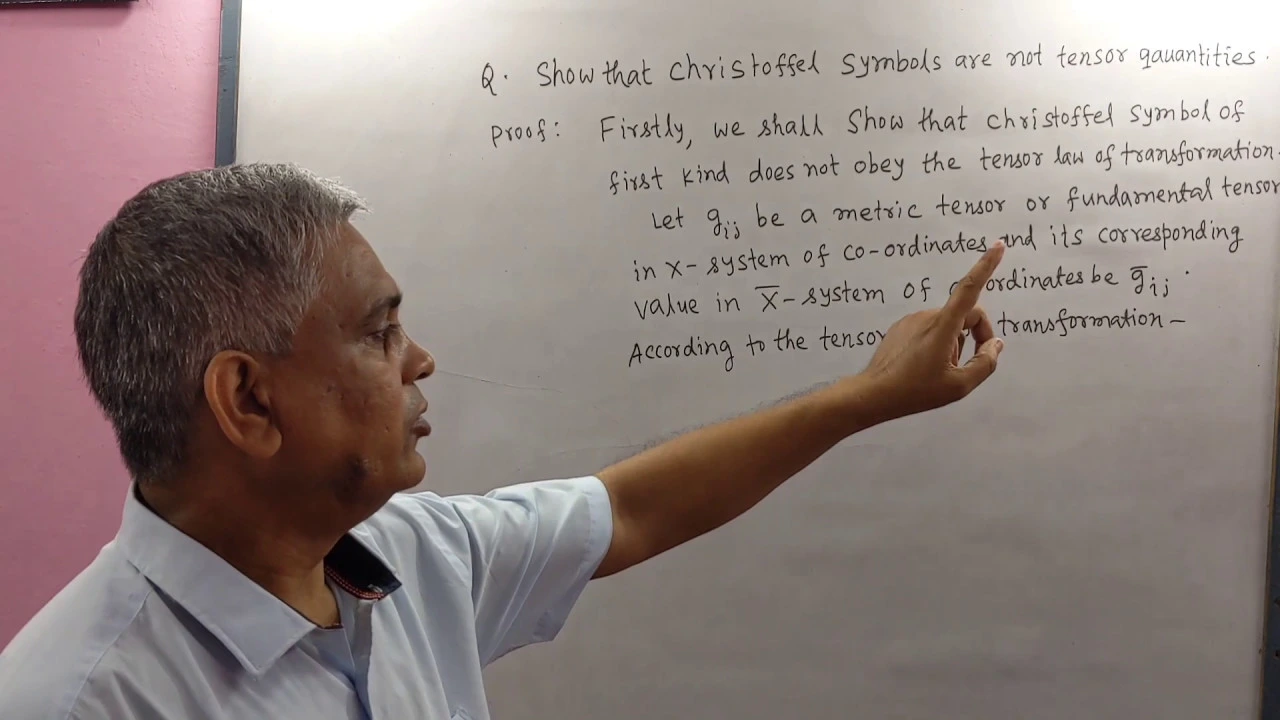 Q. Show that Christoffel Symbols are not tensor qauantities.
Proof: Firstly, we shall Show that christoffel symbol of
first kind does not obey the tensor law of transformation.
Let gij be a metric tensor or fundamental tensor
in x-system of co-ordinates and its corresponding
value in x̅-system of ordinates be g̅ij.
According to the tensor transformation-